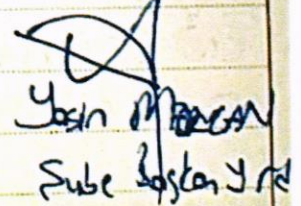 Yasin MERCAN
Şube Başkan Yrd